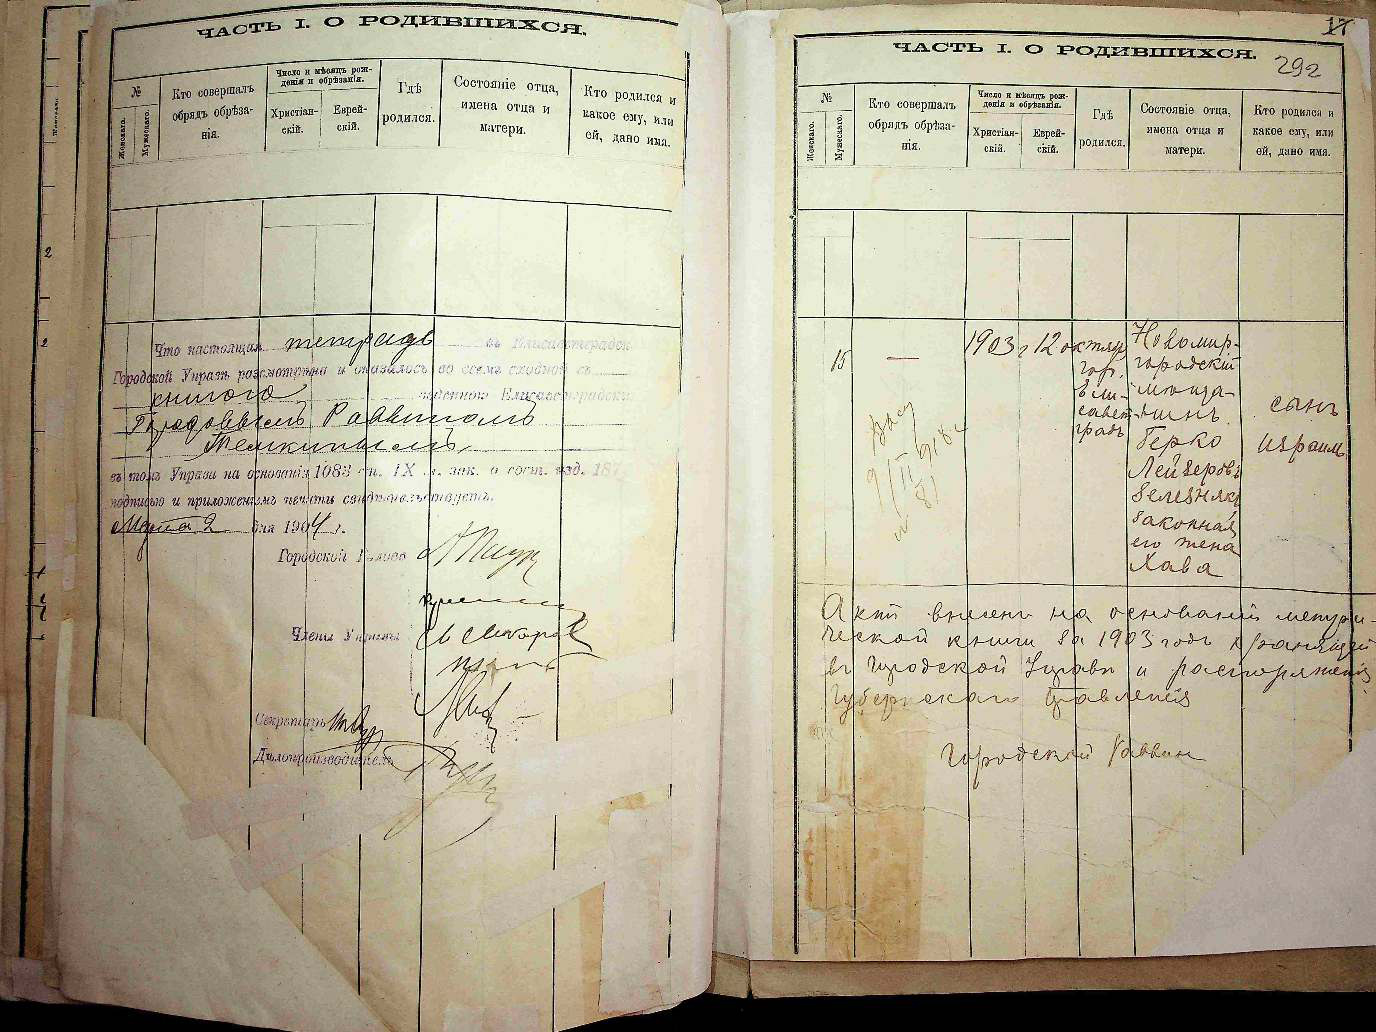 ЧАСТЬ I. О РОДИВШИХСЯ.
№
Женскаго.
Мужескаго.
Кто совершалъ
обрядъ обрѣза-
нія.
Число и мѣсяцъ рож-
денія и обрѣзанія.
Христіан-
скій.
Еврей-
скій.
Гдѣ
родился.
Состояніе отца,
имена отца и
матери.
Кто родился и
какое ему, или
ей, дано имя.
Что настоящая тетрадь въ Елисаветградск
Городской Управѣ разсмотрѣна и оказалось во всемъ сходной съ
книгою Елисаветградски
Городовымъ Раввиномъ
Темкинымъ
въ томъ Управа на основаніи 1083 ст. IX т. зак. о сост. изд. 187
подписью и приложеніемъ печати свидѣтельствуетъ.
Марта 2 дня 1904 г.
Городской Голова
Члены Управы
Секретарь
Дѣлопроизводитель
17
ЧАСТЬ I. О РОДИВШИХСЯ.
292
№
Женскаго.
Мужескаго.
Кто совершалъ
обрядъ обрѣза-
нія.
Число и мѣсяцъ рож-
денія и обрѣзанія.
Христіан-
скій.
Еврей-
скій.
Гдѣ
родился.
Состояніе отца,
имена отца и
матери.
Кто родился и
какое ему, или
ей, дано имя.
15
—
1903 г 12 октяр
гор.
Ели-
савет
градъ
Новомир-
городскій
мѣща-
нинъ
Герко
Лейзеровъ
Зелезнякъ
законная
его жена
Хава
сынъ
Израиль
Актъ внесенъ на основаніи метри-
ческой книги за 1903 годъ хранящей
въ Городской Управѣ и распоряженія
Губернскаго Правленія
Городской Раввин